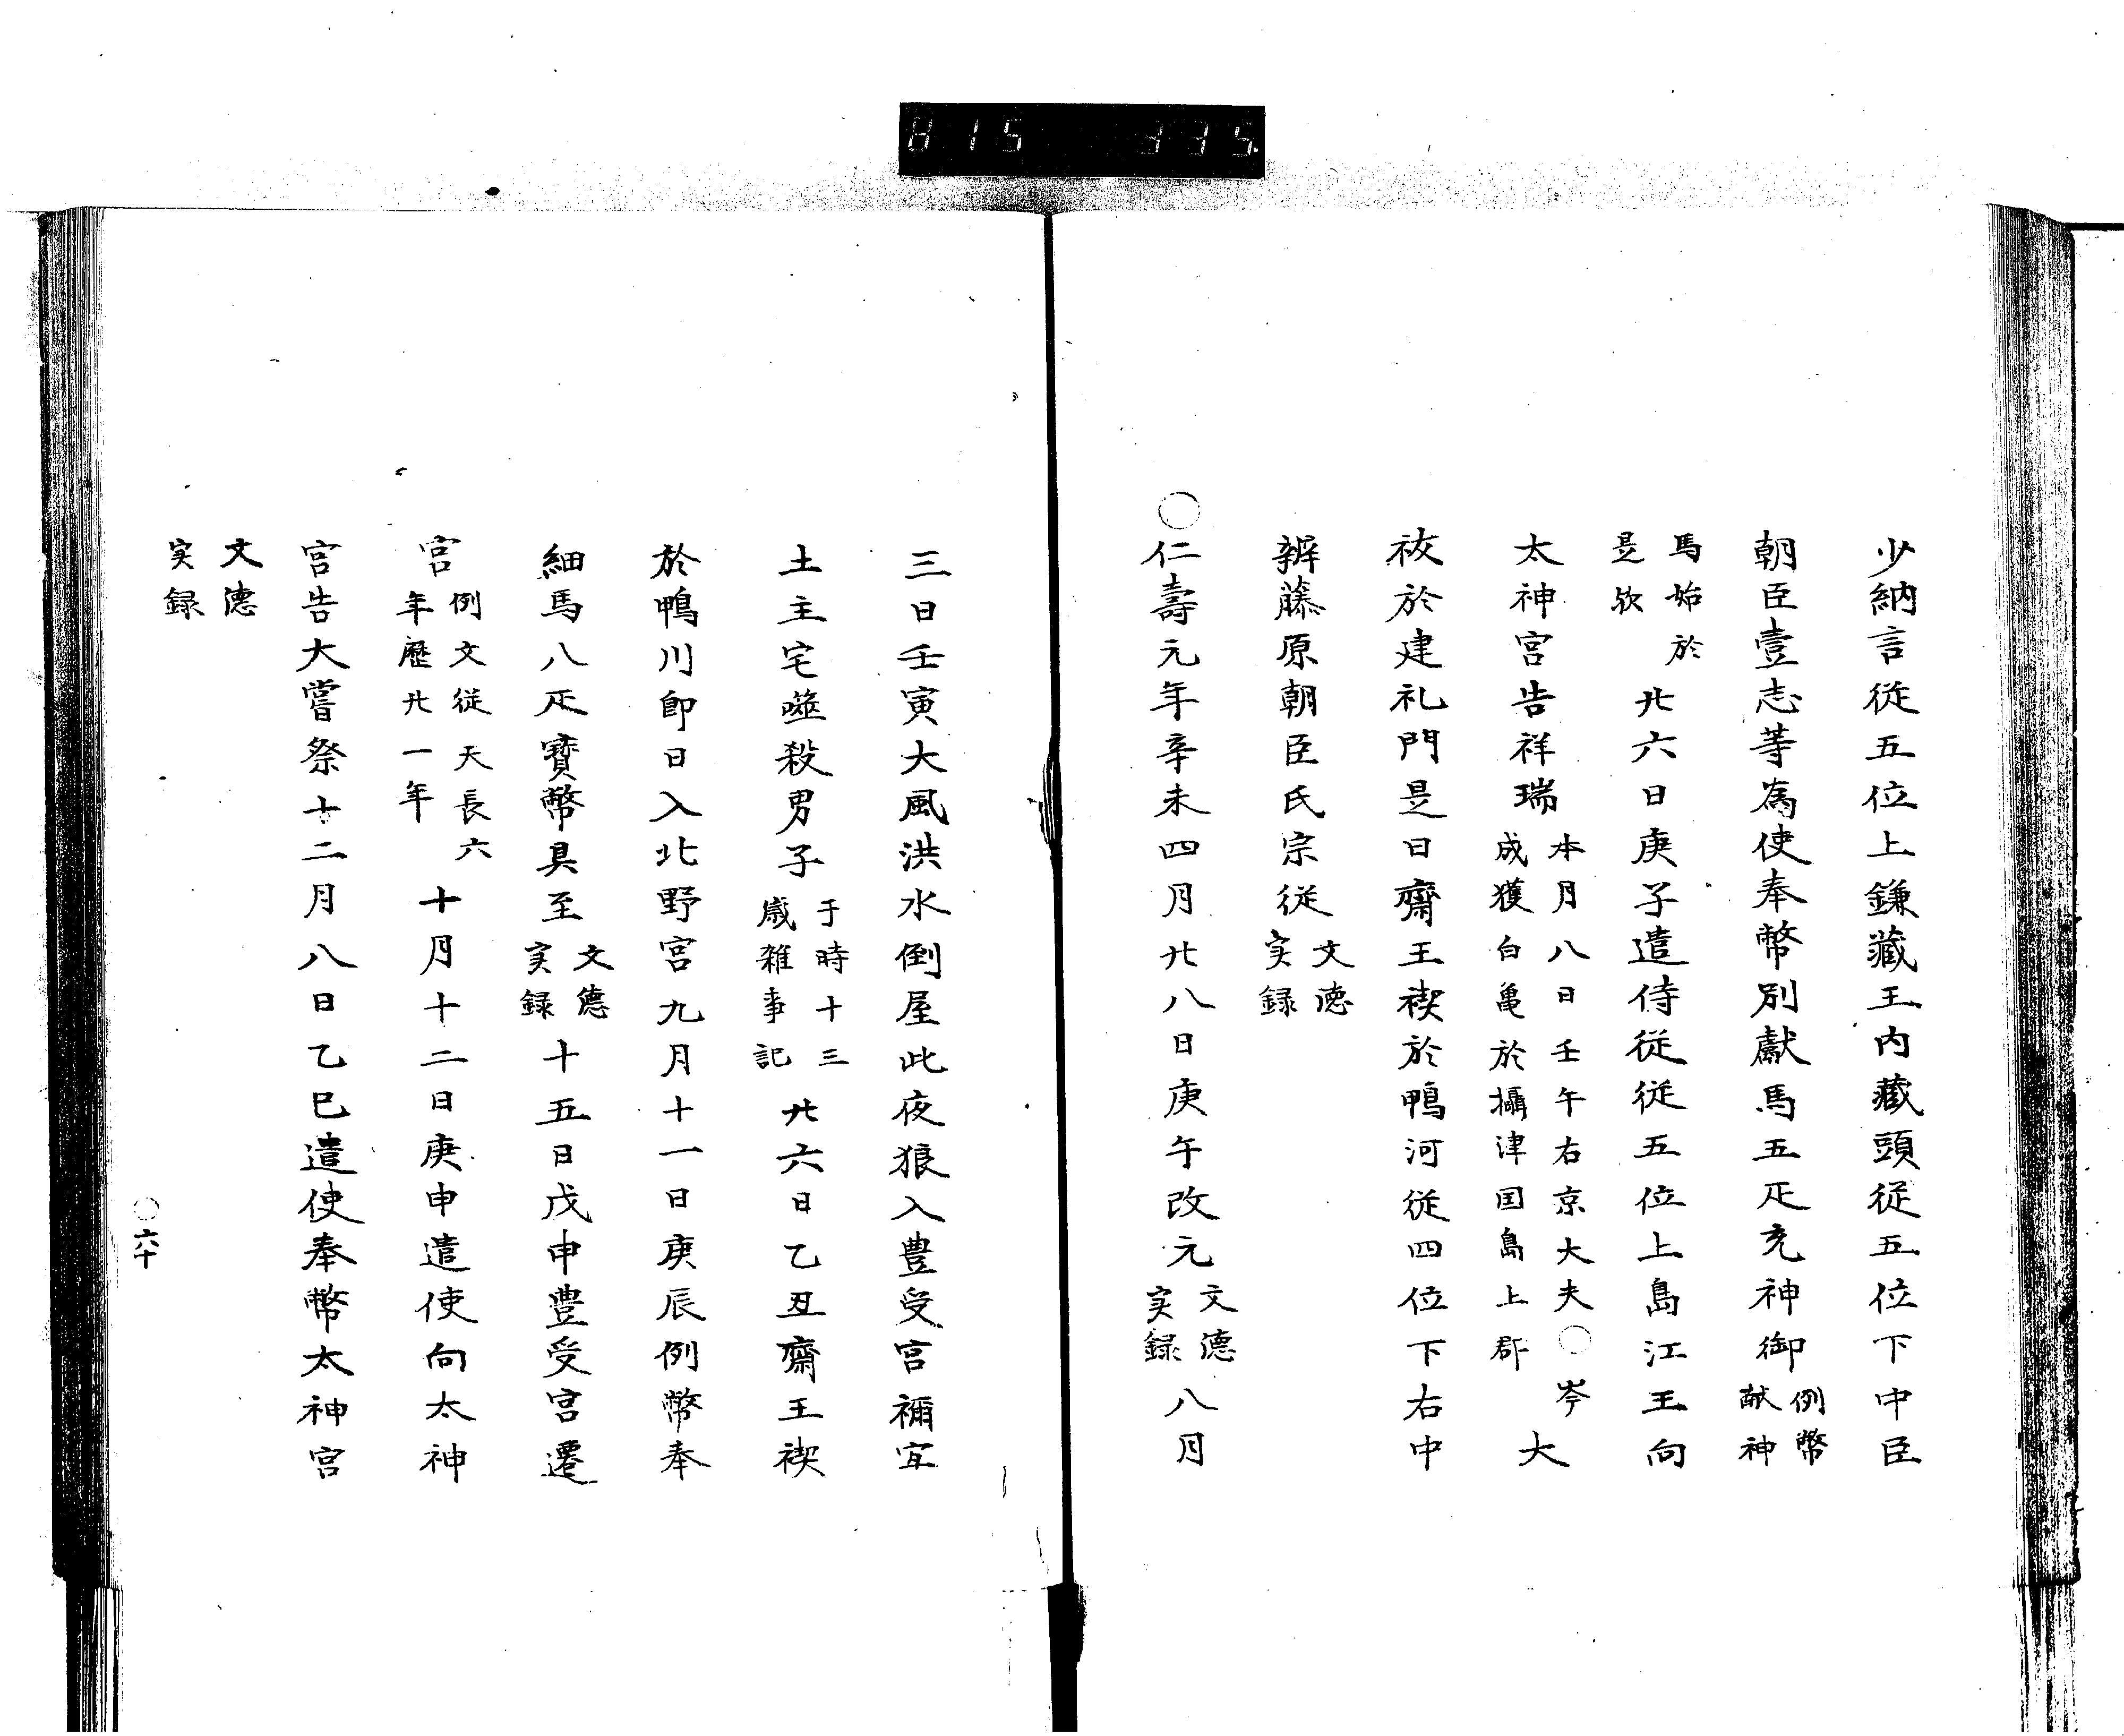 815 335
少納言従五位上鎌藏王内藏頭従五位下中臣
朝臣壹志等為使奉幣別獻馬五疋充神御例幣献神
馬始於是欤廿六日庚子遣侍従従五位上島江王向
太神宮告祥瑞本月八日壬午右京大夫〇岑成獲白亀於攝津国島上郡大
祓於建礼門是日齋王禊於鴨河従四位下右中
辨藤原朝臣氏宗従文德実録
〇仁壽元年辛未四月廿八日庚午改元文德実録八月
三日壬寅大風洪水倒屋此夜狼入豊受宮禰宜
土主宅噬殺男子于時十三歳雑事記廿六日乙丑齋王禊
於鴨川即日入北野宮九月十一日庚辰例幣奉
細馬八疋寳幣具至文德実録十五日戊申豊受宮遷
宮例文従天長六年歷廿一年十月十二日庚申遣使向太神
宮告大嘗祭十二月八日乙巳遣使奉幣太神宮
文德実録
〇六十